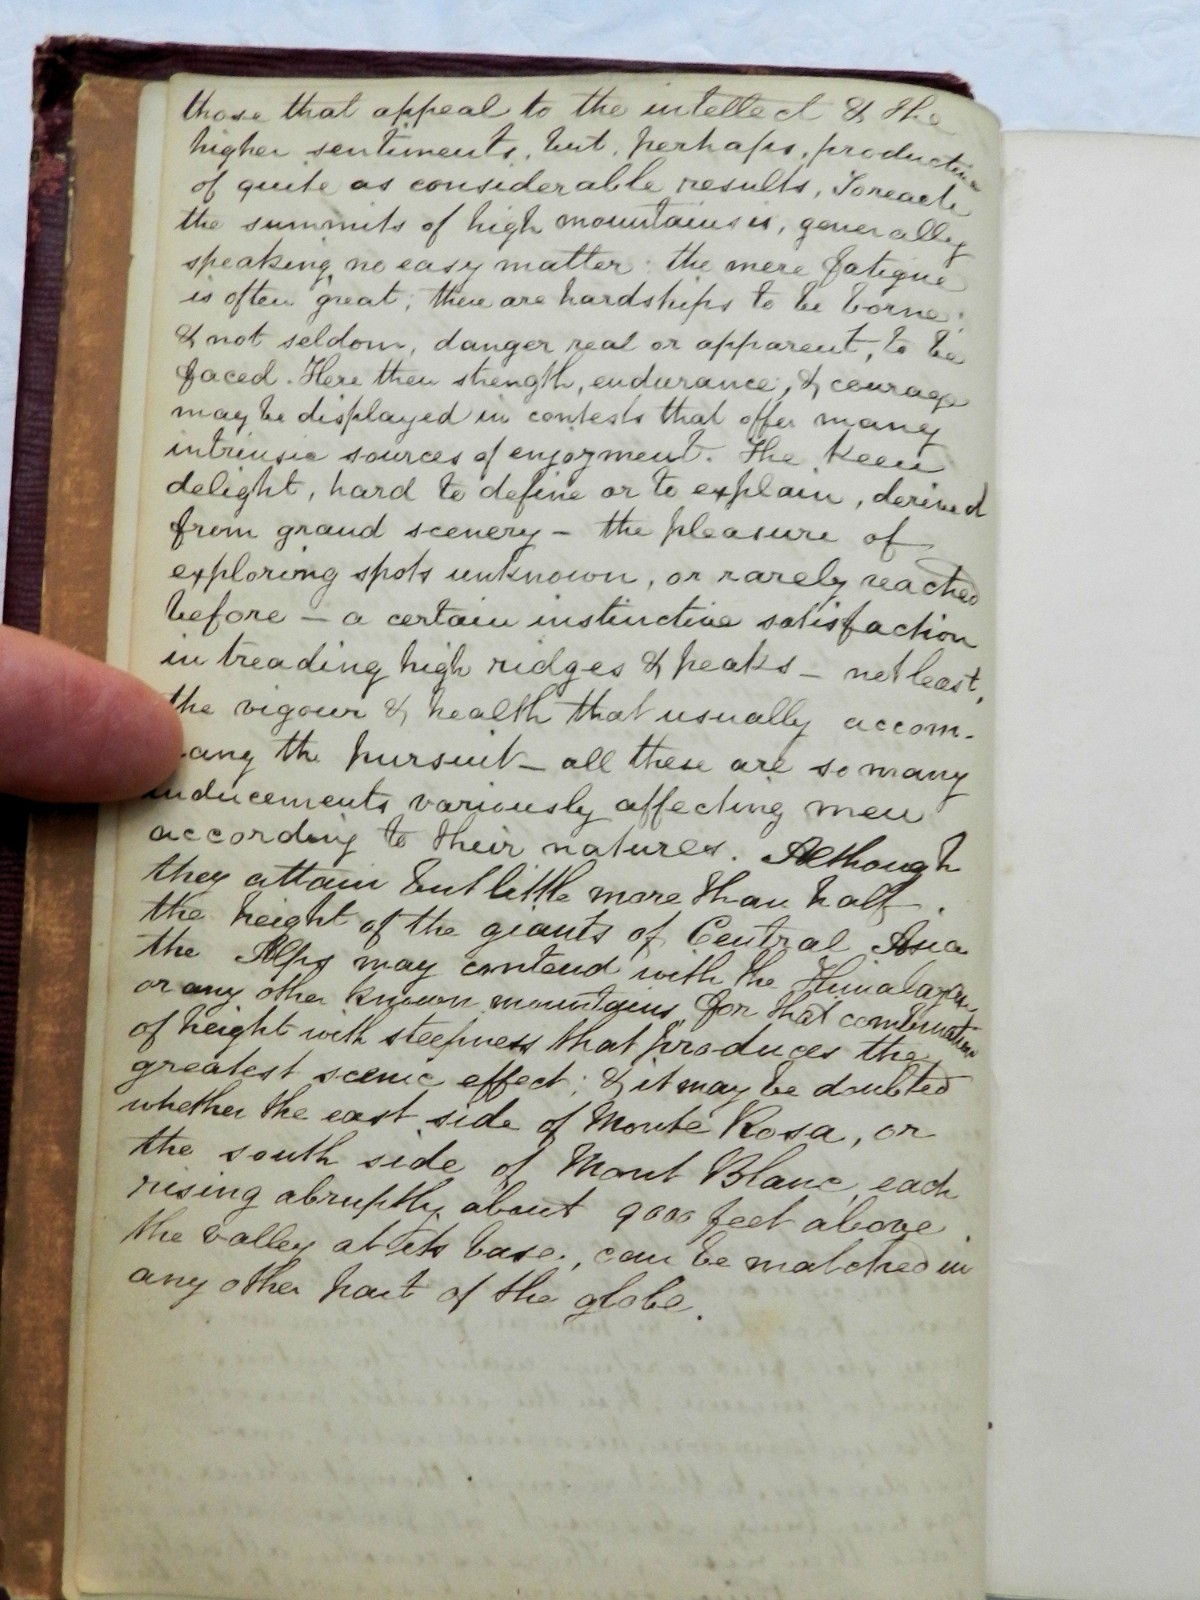 those that appeal to the intellect & the
higher sentiments, but, perhaps, productive
of quite as considerable results. To reach
the summits of high mountains is, generally
speaking, no easy matter: the mere fatigue
is often great; there are hardships to be borne;
& not seldom, danger real or apparent, to be
faced. Here then strength, endurance, & courage
may be displayed in contests that offer many
intrinsic sources of enjoyment. The keen
delight, hard to define or to explain, derived
from grand scenery – the pleasure of
exploring spots unknown, or rarely reached
before – a certain instinctive satisfaction
in treading high ridges & peaks – not least,
the vigour & health that usually accom-
pany the pursuit – all these are so many
inducements variously affecting men
according to their natures. Although
they attain but little more than half
the height of the giants of Central Asia
the Alps may contend with the Himalayan
or any other known mountains for that combination
of height with steepness that produces the
greatest scenic effect: & it may be doubted
whether the east side of Monte Rosa, or
the south side of Mont Blanc, each
rising abruptly about 9000 feet above
the valley at its base, can be matched in
any other part of the globe.